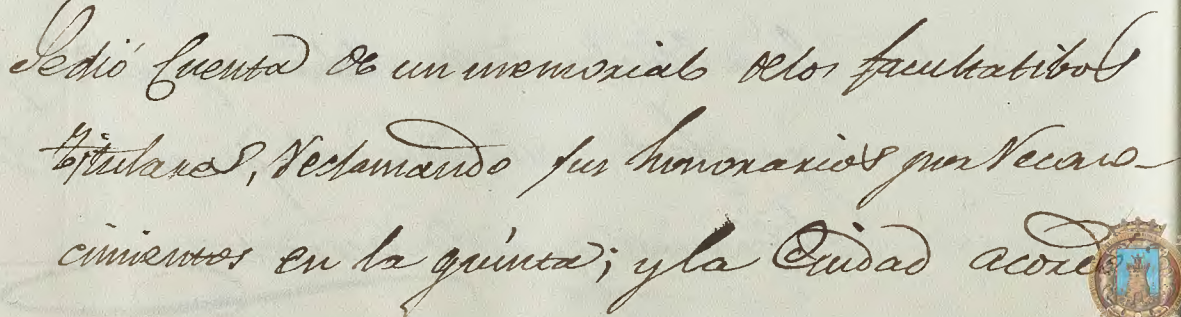 Se dió Cuenta de un memorial de los facultatibos
titulares, reclamando sus honorarios por recono-
cimientos en la quinta; y la Ciudad acord